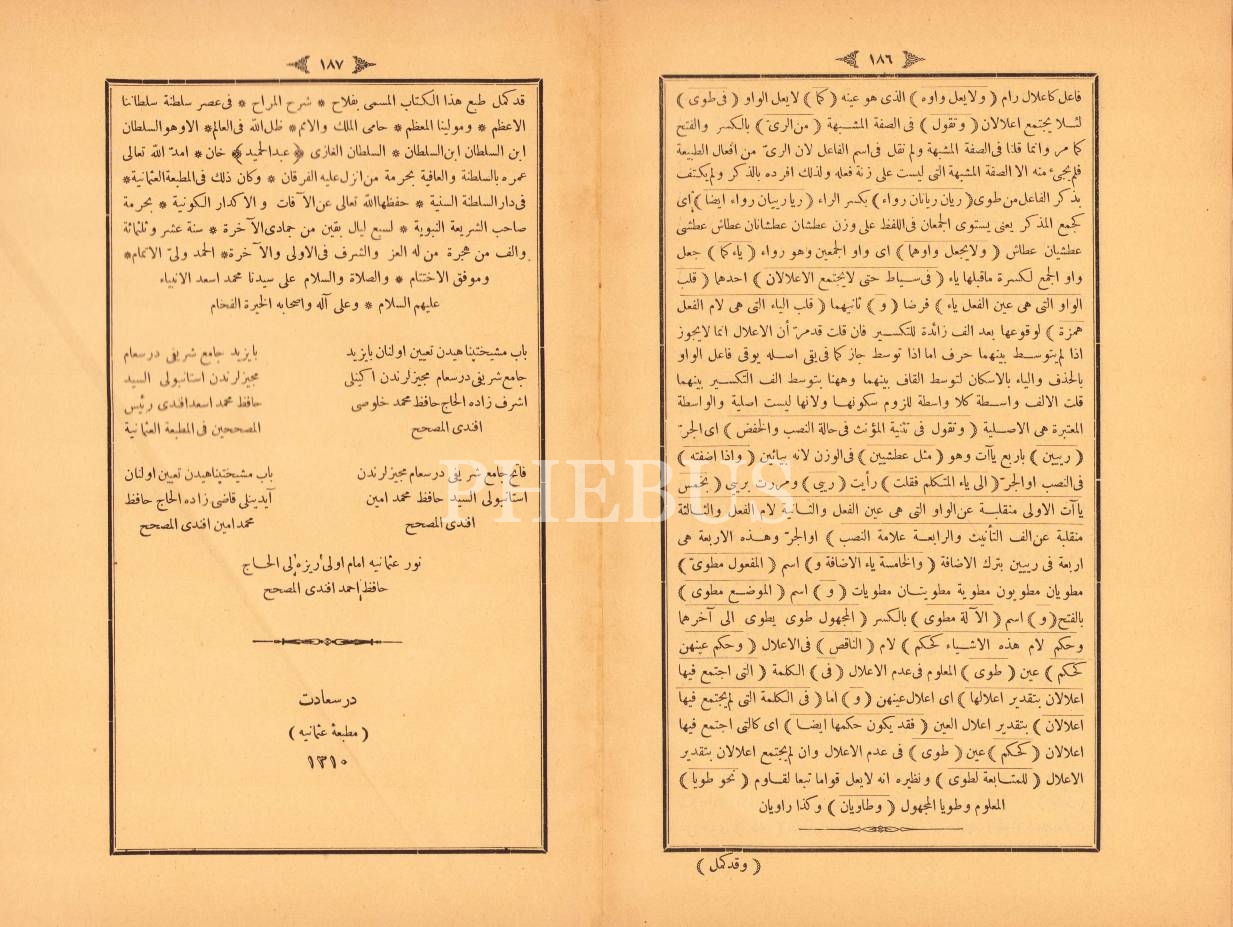 ١٨٦
فاعل كاعلال رام ﴿ ولايعل واوه ﴾ الذى هو عينه ﴿ كما ﴾ لايعل الواو ﴿ فى طوى ﴾
لئلا يجتمع اعلالان ﴿ وتقول ﴾ فى الصفة المشبهة ﴿ من الرىّ ﴾ بالكسر والفتح
كما مر وانما قلنا فى الصفة المشبهة ولم تقل فى اسم الفاعل لان الرىّ من افعال الطبيعة
فلم يجئ منه الا الصفة المشبهة التى ليست على زنة فعله ولذلك افرده بالذكر ولم يكتف
بذكر الفاعل من طوى ﴿ ريان ريانان رواء ﴾ بكسر الراء ﴿ ريا ريبان رواء ايضا ﴾ اى
كجمع المذكر يعنى يستوى الجمعان فى اللفظ على وزن عطشان عطشانان عطاش عطشى
عطشيان عطاش ﴿ ولايجعل واوهما ﴾ اى واو الجمعين وهو رواء ﴿ ياء كما ﴾ جعل
واو الجمع لكسرة ماقبلها ياء ﴿ فى سياط حتى لايجتمع الاعلالان ﴾ احدهما ﴿ قلب
الواو التى هى عين الفعل ياء ﴾ فرضا ﴿ و ﴾ ثانيهما ﴿ قلب الياء التى هى لام الفعل
همزة ﴾ لوقوعها بعد الف زائدة للتكسير فان قلت قدمرّ أن الاعلال انما لايجوز
اذا لم يتوسط بينهما حرف اما اذا توسط جاز كما فى يقى اصله يوقى فاعل الواو
بالحذف والياء بالاسكان لتوسط القاف بينهما وههنا بتوسط الف التكسير بينهما
قلت الالف واسطة كلا واسطة للزوم سكونها ولانها ليست اصلية والواسطة
المعتبرة هى الاصلية ﴿ وتقول فى تثنية المؤنث فى حالة النصب والخفض ﴾ اى الجرّ
﴿ ريبين ﴾ باربع يآت وهو ﴿ مثل عطشيين ﴾ فى الوزن لانه بيائين ﴿ واذا اضفته ﴾
فى النصب اوالجرّ ﴿ الى ياء المتكلم فقلت ﴾ رأيت ﴿ ربى ﴾ ومررت بربى ﴿ بخمس
يآت الاولى منقلبة عن الواو التى هى عين الفعل والثانية لام الفعل والثالثة
منقلبة عن الف التأنيث والرابعة علامة النصب ﴾ اوالجرّ وهذه الاربعة هى
اربعة فى ريبين بترك الاضافة ﴿ والخامسة ياء الاضافة و ﴾ اسم ﴿ المفعول مطوىّ ﴾
مطويان مطويون مطوية مطويتان مطويات ﴿ و ﴾ اسم ﴿ الموضع مطوى ﴾
بالفتح ﴿ و ﴾ اسم ﴿ الآلة مطوى ﴾ بالكسر ﴿ المجهول طوى يطوى الى آخرهما
وحكم لام هذه الاشياء كحكم ﴾ لام ﴿ الناقص ﴾ فى الاعلال ﴿ وحكم عينهن
كحكم ﴾ عين ﴿ طوى ﴾ المعلوم فى عدم الاعلال ﴿ فى ﴾ الكلمة ﴿ التى اجتمع فيها
اعلالان بتقدير اعلالها ﴾ اى اعلال عينهن ﴿ و ﴾ اما ﴿ فى الكلمة التى لم يجتمع فيها
اعلالان ﴾ بتقدير اعلال العين ﴿ فقد يكون حكمها ايضا ﴾ اى كالتى اجتمع فيها
اعلالان ﴿ كحكم ﴾ عين ﴿ طوى ﴾ فى عدم الاعلال وان لم يجتمع اعلالان بتقدير
الاعلال ﴿ للمتابعة لطوى ﴾ ونظيره انه لايعل قواما تبعا لقاوم ﴿ نحو طويا ﴾
المعلوم وطويا المجهول ﴿ وطاويان ﴾ وكذا راويان
﴿ وقد كمل ﴾
١٨٧
قد كمل طبع هذا الكتاب المسمى بفلاح * شرح المراح * فى عصر سلطنة سلطاننا
الاعظم * ومولينا المعظم * حامى الملك والامم * ظل الله فى العالم * الا وهو السلطان
ابن السلطان ابن السلطان * السلطان الغازى ﴿ عبد الحميد ﴾ خان * امدّ الله تعالى
عمره بالسلطنة والعافية بحرمة من انزل عليه الفرقان * وكان ذلك فى المطبعة العثمانية *
فى دار السلطنة السنية * حفظها الله تعالى عن الآفات والاكدار الكونية * بحرمة
صاحب الشريعة النبوية * لسبع ليال بقين من جمادى الآخرة * سنة عشر وثلثمائة
والف من هجرة من له العز والشرف فى الاولى والآخرة * الحمد ولىّ الاتمام *
وموفق الاختتام * والصلاة والسلام على سيدنا محمد اسعد الانبياء
عليهم السلام * وعلى آله واصحابه الخيرة الفخام
باب مشيختپناهيدن تعيين اولنان بايزيد
جامع شريفى درسعام مجيزلرندن اكينلى
اشرف زاده الحاج حافظ محمد خلوصى
افندى المصحح
بايزيد جامع شريفى درسعام
مجيزلرندن استانبولى السيد
حافظ محمد اسعد افندى رئيس
المصححين فى المطبعة العثمانية
فاتح جامع شريفى درسعام مجيزلرندن
استانبولى السيد حافظ محمد امين
افندى المصحح
باب مشيختپناهيدن تعيين اولنان
آيدينلى قاضى زاده الحاج حافظ
محمد امين افندى المصحح
نور عثمانيه امام اولى ريزه لى الحاج
حافظ احمد افندى المصحح
درسعادت
( مطبعهٔ عثمانيه )
١٣١٠
PHEBUS